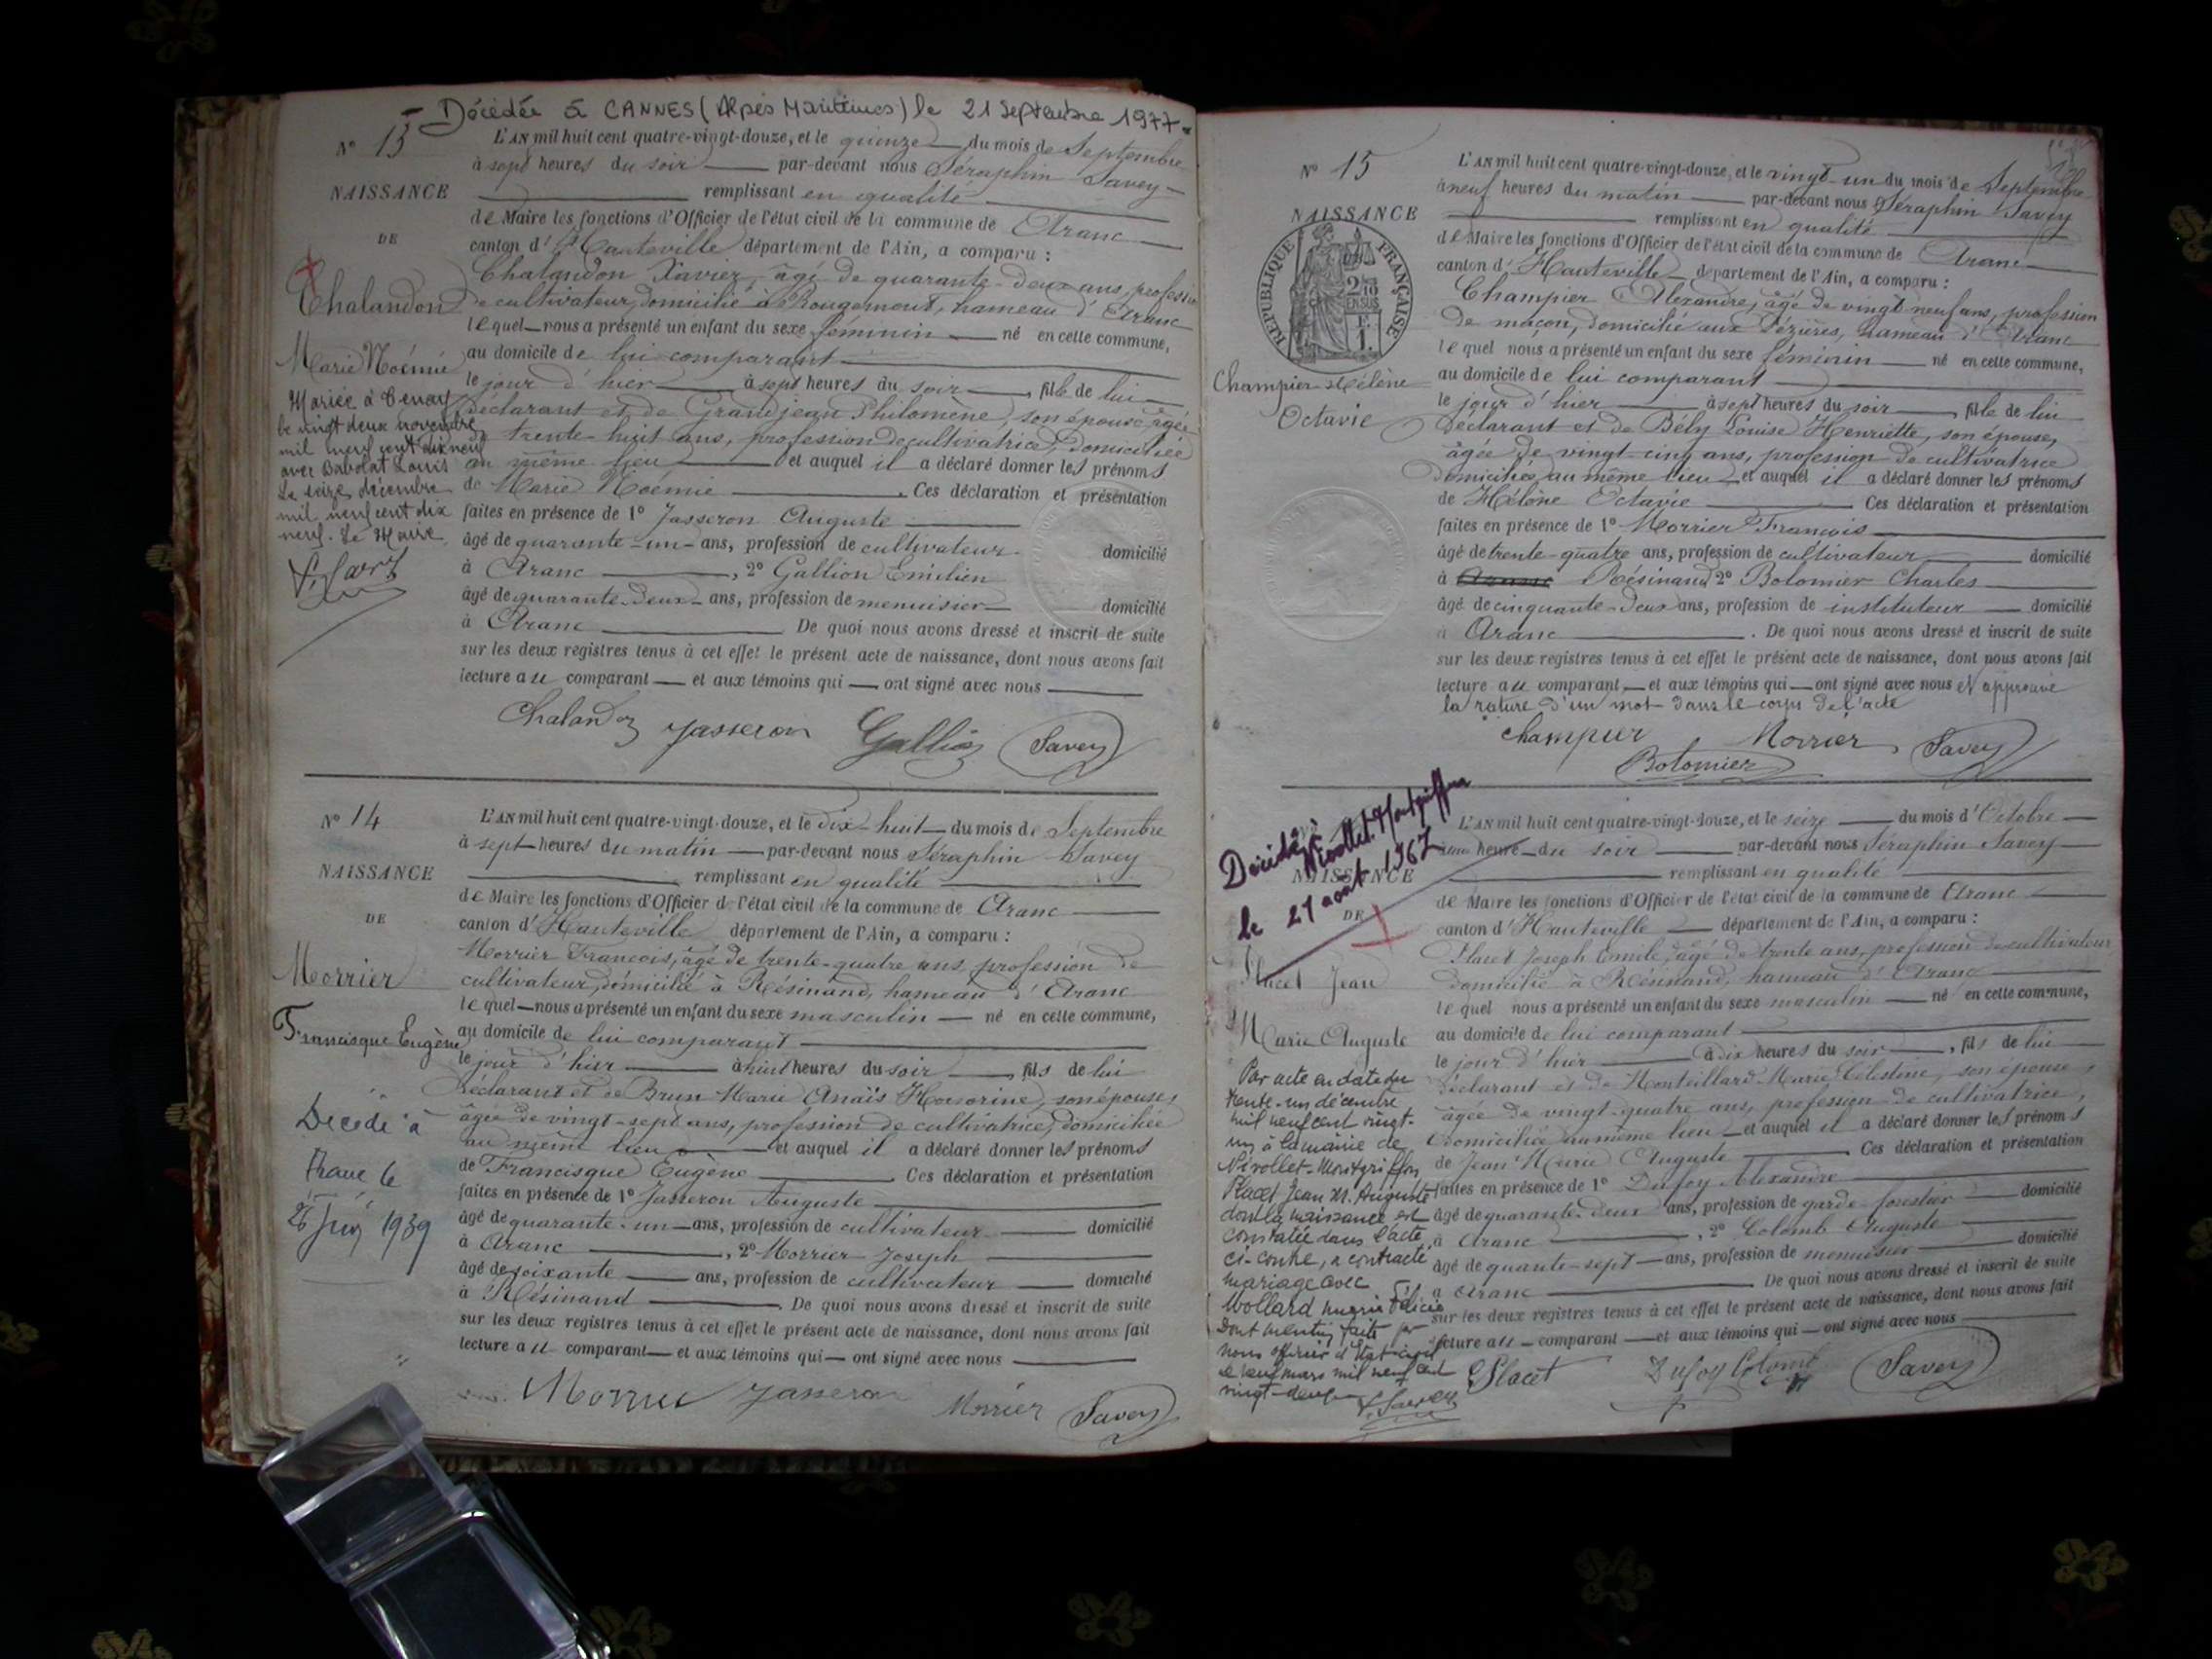 - Décédée à CANNES (Alpes Maritimes) le 21 Septembre 1977 -
N° 13
NAISSANCE
DE
Chalandon
Marie Noémie
Mariée à Tenay
le vingt deux novembre
mil neuf cent dix neuf
avec Babolat Louis
Le seize décembre
mil neuf cent dix
neuf. Le Maire
L'AN mil huit cent quatre-vingt-douze, et le quinze du mois de Septembre
à sept heures du soir par-devant nous Séraphin Savey
remplissant en qualité
de Maire les fonctions d'Officier de l'état civil de la commune de Aranc
canton d'Hauteville département de l'Ain, a comparu :
Chalandon Xavier, âgé de quarante-deux ans, profession
de cultivateur, domicilié à Rougemont, hameau d'Aranc
lequel nous a présenté un enfant du sexe féminin né en cette commune,
au domicile de lui comparant
le jour d'hier à sept heures du soir, fille de lui
déclarant et de Grandjean Philomène, son épouse âgée
trente-huit ans, profession de cultivatrice, domiciliée
au même lieu et auquel il a déclaré donner les prénoms
de Marie Noémie. Ces déclaration et présentation
faites en présence de 1° Jasseron Auguste
âgé de quarante-un ans, profession de cultivateur domicilié
à Aranc, 2° Gallion Emilien
âgé de quarante-deux ans, profession de menuisier domicilié
à Aranc De quoi nous avons dressé et inscrit de suite
sur les deux registres tenus à cet effet le présent acte de naissance, dont nous avons fait
lecture au comparant et aux témoins qui ont signé avec nous
Chalandon Jasseron Gallion Savey
N° 14
NAISSANCE
DE
Morrier
Francisque Eugène
Décédé à
Aranc le
1939
L'AN mil huit cent quatre-vingt-douze, et le dix-huit du mois de Septembre
à sept heures du matin par-devant nous Séraphin Savey
remplissant en qualité
de Maire les fonctions d'Officier de l'état civil de la commune de Aranc
canton d'Hauteville département de l'Ain, a comparu :
Morrier François, âgé de trente-quatre ans, profession de
cultivateur, domicilié à Résinand, hameau d'Aranc
lequel nous a présenté un enfant du sexe masculin né en cette commune,
au domicile de lui comparant
le jour d'hier à huit heures du soir, fils de lui
déclarant et de Brun Marie Anaïs Honorine, son épouse,
âgée de vingt-sept ans, profession de cultivatrice, domiciliée
au même lieu et auquel il a déclaré donner les prénoms
de Francisque Eugène. Ces déclaration et présentation
faites en présence de 1° Jasseron Auguste
âgé de quarante-un ans, profession de cultivateur domicilié
à Aranc, 2° Morrier Joseph
âgé de soixante ans, profession de cultivateur domicilié
à Résinand. De quoi nous avons dressé et inscrit de suite
sur les deux registres tenus à cet effet le présent acte de naissance, dont nous avons fait
lecture au comparant et aux témoins qui ont signé avec nous
Morrier Jasseron Morrier Savey
N° 15
NAISSANCE
REPUBLIQUE FRANÇAISE
2/10
EN SUS
Champier Hélène
Octavie
L'AN mil huit cent quatre-vingt-douze, et le vingt-un du mois de Septembre
à neuf heures du matin par-devant nous Séraphin Savey
remplissant en qualité
de Maire les fonctions d'Officier de l'état civil de la commune de Aranc
canton d'Hauteville département de l'Ain, a comparu :
Champier Alexandre, âgé de vingt neuf ans, profession
de maçon, domicilié aux Pézières, hameau d'Aranc
lequel nous a présenté un enfant du sexe féminin né en cette commune,
au domicile de lui comparant
le jour d'hier à sept heures du soir, fille de lui
déclarant et de Bély Louise Henriette, son épouse,
âgée de vingt-cinq ans, profession de cultivatrice
domiciliée au même lieu et auquel il a déclaré donner les prénoms
de Hélène Octavie Ces déclaration et présentation
faites en présence de 1° Morrier François
âgé de trente-quatre ans, profession de cultivateur domicilié
à Aranc Résinand 2° Bolomier Charles
âgé de cinquante-deux ans, profession de instituteur domicilié
à Aranc. De quoi nous avons dressé et inscrit de suite
sur les deux registres tenus à cet effet le présent acte de naissance, dont nous avons fait
lecture au comparant et aux témoins qui ont signé avec nous et approuvé
la rature d'un mot dans le corps de l'acte
Champier Morrier Savey
Bolomier
Décédé à
Nivollet-Montgriffon
le 27 août 1967
NAISSANCE
DE
Placet Jean
Marie Auguste
Par acte en date du
trente-un décembre
mil neuf cent vingt-
un à la mairie de
Nivollet-Montgriffon
Placet Jean M. Auguste
dont la naissance est
constatée dans l'acte
ci-contre, a contracté
mariage avec
Wollard Marie Félicie
Dont mention faite par
nous officier d'état civil
le neuf mars mil neuf cent
vingt-deux
L'AN mil huit cent quatre-vingt-douze, et le seize du mois d'Octobre
une heure du soir par-devant nous Séraphin Savey
remplissant en qualité
de Maire les fonctions d'Officier de l'état civil de la commune de Aranc
canton d'Hauteville département de l'Ain, a comparu :
Placet Joseph Emile, âgé de trente ans, profession de cultivateur
domicilié à Résinand, hameau d'Aranc
lequel nous a présenté un enfant du sexe masculin né en cette commune,
au domicile de lui comparant
le jour d'hier à dix heures du soir, fils de lui
déclarant et de Monteillard Marie Célestine, son épouse,
âgée de vingt-quatre ans, profession de cultivatrice,
domiciliée au même lieu et auquel il a déclaré donner les prénoms
de Jean Marie Auguste. Ces déclaration et présentation
faites en présence de 1° Dufoy Alexandre
âgé de quarante-deux ans, profession de garde forestier domicilié
à Aranc, 2° Colomb Auguste
âgé de quarante-sept ans, profession de menuisier domicilié
à Aranc. De quoi nous avons dressé et inscrit de suite
sur les deux registres tenus à cet effet le présent acte de naissance, dont nous avons fait
lecture au comparant et aux témoins qui ont signé avec nous
Placet Dufoy Colomb Savey